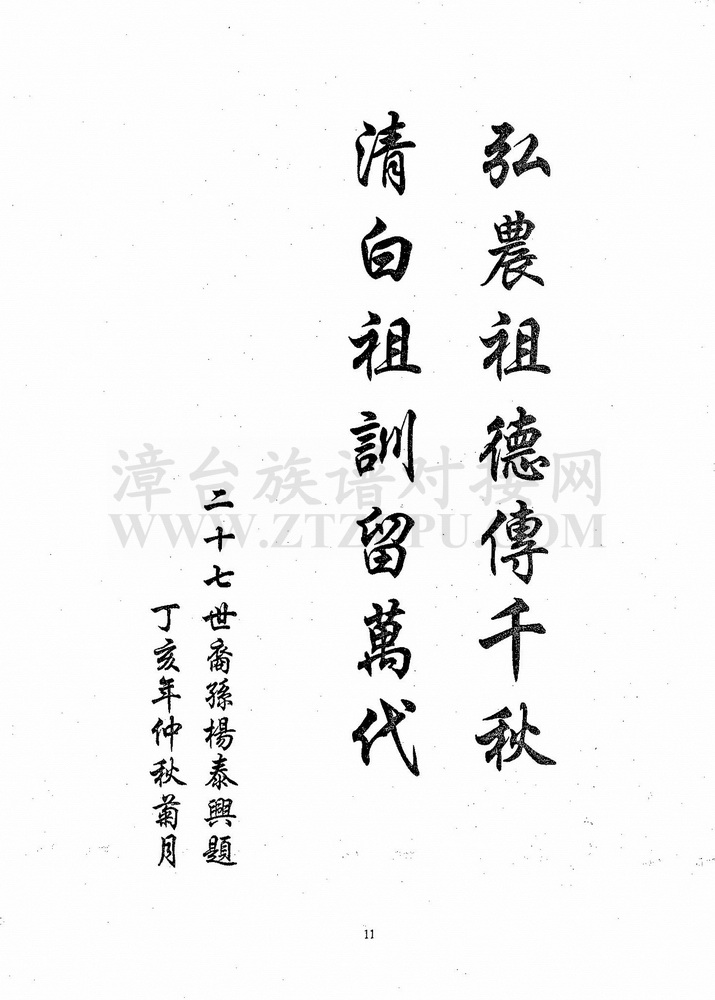 弘農祖德傳千秋
清白祖訓留萬代
二十七世裔孫楊泰興題
丁亥年仲秋菊月
漳台族谱对接网
WWW.ZTZUPU.COM
11